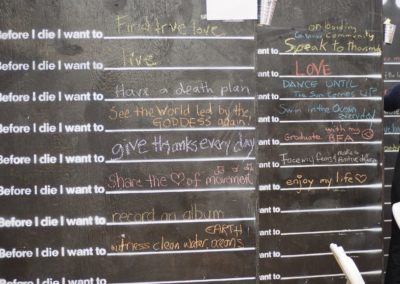 Before I die I want to Find true love
Before I die I want to live
Before I die I want to Have a death plan
Before I die I want to See the World led by the GODDESS again!
Before I die I want to give thanks every day
Before I die I want to Share the ♡ of movement
Before I die I want to record an album
Before I die I want to witness clean water, oceans EARTH!
Before I die I want to
on building community
ant to Speak to thousands
ant to LOVE
ant to DANCE UNTIL The Sun Comes UP!
ant to Swim in the Ocean everyday
ant to Graduate with my BFA
ant to Face my fears
ant to enjoy my life ♡
ant to
ant to
ant to
ant to